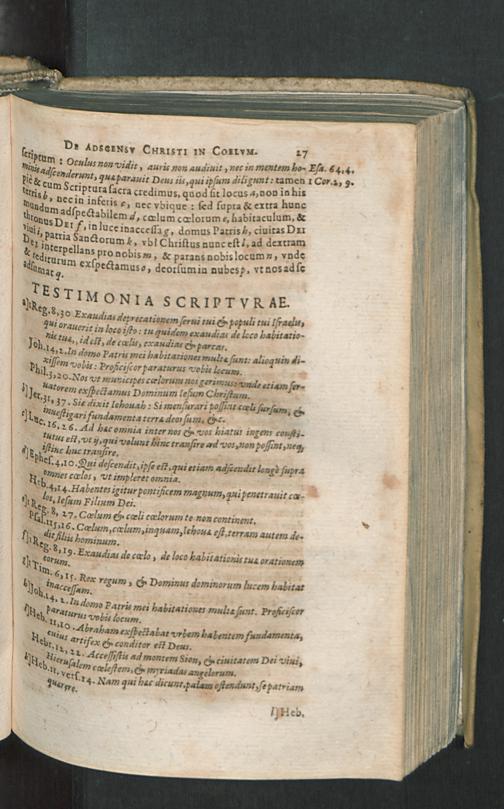 DE ADSCENSV CHRISTI IN COELVM. 27
scriptum : Oculus non vidit, auris non audiuit, nec in mentem ho- Esa. 64.4.
minis adscenderunt, quæ parauit Deus iis, qui ipsum diligunt : tamen 1 Cor. 2, 9.
piè & cum Scriptura sacra credimus, quod sit locus a, non in his
terris b, nec in inferis c, nec vbique : sed supra & extra hunc
mundum adspectabilem d, cœlum cœlorum e, habitaculum, &
thronus DEI f, in luce inaccessa g, domus Patris h, ciuitas DEI
viui i, patria Sanctorum k, vbi Christus nunc est l, ad dextram
DEI interpellans pro nobis m, & parans nobis locum n, vnde
& rediturum exspectamus o, deorsum in nubes p, vt nos ad se
adsumat q.
TESTIMONIA SCRIPTVRAE.
a] 1. Reg. 8, 30. Exaudias deprecationem serui tui & populi tui Israelis,
qui orauerit in loco isto : tu quidem exaudias de loco habitatio-
nis tuæ, id est, de cœlis, exaudias & parcas.
Joh. 14, 2. In domo Patris mei habitationes multæ sunt : alioquin di-
xissem vobis : Proficiscor paraturus vobis locum.
Phil. 3, 20. Nos vt municipes cœlorum nos gerimus : vnde etiam ser-
uatorem exspectamus Dominum Iesum Christum.
b] Jer. 31, 37. Sic dixit Iehouah : Si mensurari possint cœli sursum, &
inuestigari fundamenta terræ deorsum, &c.
c] Luc. 16, 26. Ad hæc omnia inter nos & vos hiatus ingens consti-
tutus est, vt ij, qui volunt hinc transire ad vos, non possint, neq;
istinc huc transire.
d] Ephes. 4, 10. Qui descendit, ipse est, qui etiam adscendit longè supra
omnes cœlos, vt impleret omnia.
Heb. 4, 14. Habentes igitur pontificem magnum, qui penetrauit cœ-
los, Iesum Filium Dei.
e] 1. Reg. 8, 27. Cœlum & cœli cœlorum te non continent.
Psal. 115, 16. Cœlum, cœlum, inquam, Iehouæ est, terram autem de-
dit filiis hominum.
f] 1. Reg. 8, 19. Exaudias de cœlo, de loco habitationis tuæ orationem
eorum.
g] 1. Tim. 6, 15. Rex regum, & Dominus dominorum lucem habitat
inaccessam.
h] Joh. 14, 2. In domo Patris mei habitationes multæ sunt. Proficiscor
paraturus vobis locum.
i] Heb. 11, 10. Abraham exspectabat vrbem habentem fundamenta,
cuius artifex & conditor est Deus.
Hebr. 12, 22. Accessistis ad montem Sion, & ciuitatem Dei viui,
Hierusalem cœlestem, & myriadas angelorum.
k] Heb. 11. vers. 14. Nam qui hæc dicunt, palam ostendunt, se patriam
quærere.
l] Heb.